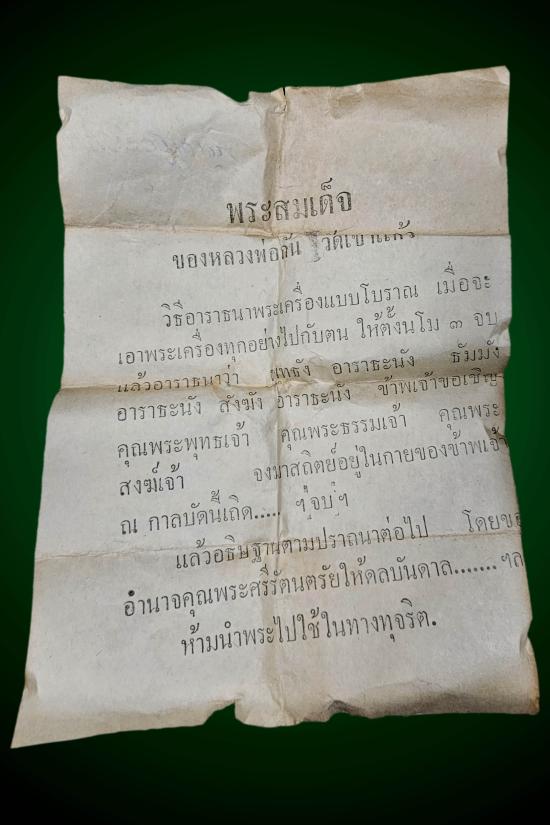 พระสมเด็จ
ของหลวงพ่อกัน วัดเขาแก้ว
วิธีอาราธนาพระเครื่องแบบโบราณ เมื่อจะ
เอาพระเครื่องทุกอย่างไปกับตน ให้ตั้งนโม ๓ จบ
แล้วอาราธนาว่า พุทธัง อาราธะนัง ธัมมัง
อาราธะนัง สังฆัง อาราธะนัง ข้าพเจ้าขอเชิญ
คุณพระพุทธเจ้า คุณพระธรรมเจ้า คุณพระ
สงฆ์เจ้า จงมาสถิตย์อยู่ในกายของข้าพเจ้า
ณ กาลบัดนี้เถิด..... ฯ จบ ฯ
แล้วอธิษฐานตามปราถนาต่อไป โดยขอ
อำนาจคุณพระศรีรัตนตรัยให้ดลบันดาล....... ฯล
ห้ามนำพระไปใช้ในทางทุจริต.